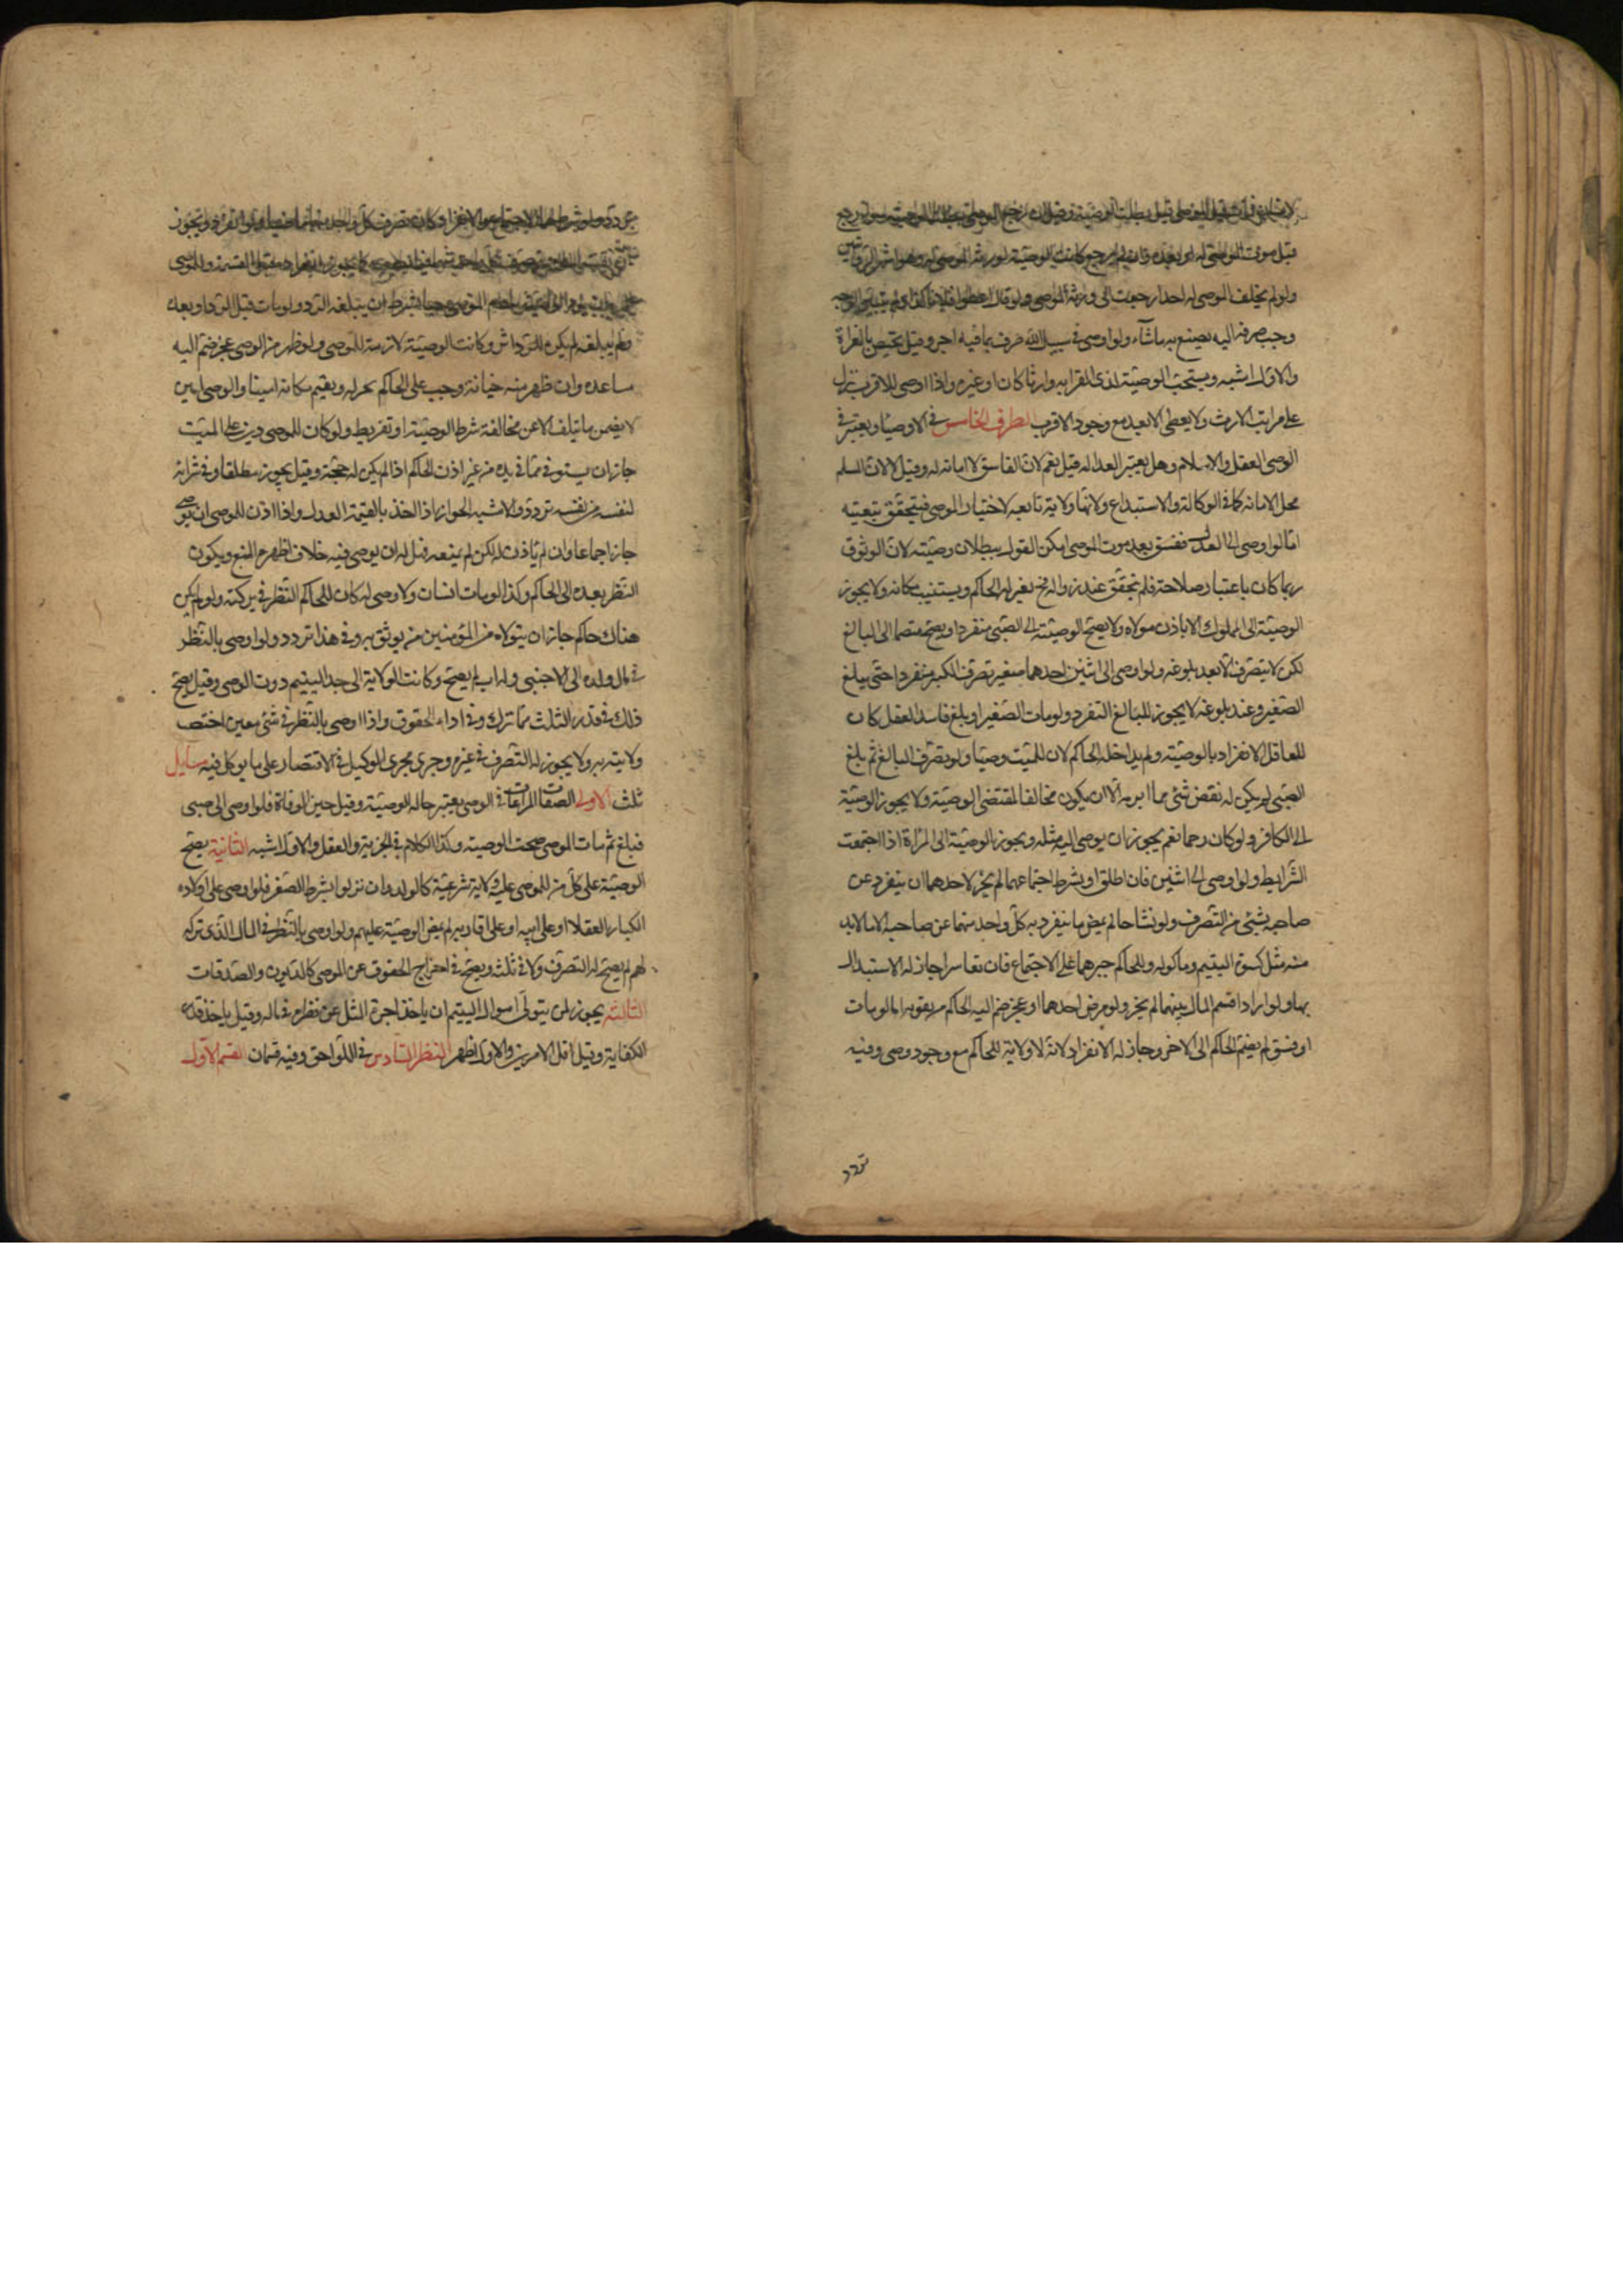 لانسان فمات قبل الموصى قيل بطلت الوصية وقيل ان رجع الموصى بطلت الوصية سواء رجع
قبل موت الموصى له او بعده وان لم يرجع كانت الوصية لورثة الموصى له وهو اشهر الروايتين
ولو لم يخلف الموصى له احدا رجعت الى ورثة الموصى ولو قال اعطوا فلانا كذا ولم يبين الوجه
وجب صرفه اليه يصنع به ما شآء ولو اوصى فى سبيل الله صرف بما فيه اجر وقيل يختص بالغزاة
والاول اشبه ويستحب الوصية لذى القرابه وارثا كان او غيره واذا اوصى للاقرب نزل
على مراتب الارث ولا يعطى الابعد مع وجود الاقرب الطرف الخامس فى الاوصيا ويعتبر فى
الوصى العقل والاسلام وهل يعتبر العداله قيل نعم لان الفاسق لا امانه له وقيل لا لان المسلم
محل الامانه كما فى الوكالة والاستيداع ولانها ولاية تابعه لاختيار الموصى فيتحقق بتعيينه
اما لو اوصى الى العدل ففسق بعد موت الموصى امكن القول ببطلان وصيته لان الوثوق
ربما كان باعتبار صلاحه فلم يتحقق عند زواله فح يعزله الحاكم ويستنيب مكانه ولا يجوز
الوصية الى المملوك الا باذن مولاه ولا يصح الوصية الى الصبى منفردا ويصح منضما الى البالغ
لكن لا يتصرف الا بعد بلوغه ولو اوصى الى اثنين احدهما صغير تصرف الكبير منفردا حتى يبلغ
الصغير وعند بلوغه لا يجوز للبالغ التفرد ولو مات الصغير او بلغ فاسد العقل كان
للعاقل الانفراد بالوصية ولم يداخله الحاكم لان للميت وصيا ولو تصرف البالغ ثم بلغ
الصبى لم يكن له نقض شئ مما ابرمه الا ان يكون مخالفا لمقتضى الوصية ولا يجوز الوصية
الى الكافر ولو كان رحما نعم يجوز ان يوصى اليه مثله ويجوز الوصية الى المراة اذا اجتمعت
الشرايط ولو اوصى الى اثنين فان اطلق او شرط اجتماعهما لم يجز لاحدهما ان ينفرد عن
صاحبه بشئ من التصرف ولو تشاحا لم يمض ما ينفرد به كل واحد منهما عن صاحبه الا ما لابد
منه مثل كسوة اليتيم وماكوله وللحاكم جبرهما على الاجتماع فان تعاسرا جاز له الاستبدال
بهما ولو ارادا قسم المال بينهما لم يجز ولو مرض احدهما او عجز ضم اليه الحاكم من يقويه اما لو مات
او فسق لم يضم الحاكم الى الاخر وجاز له الانفراد لانه لا ولاية للحاكم مع وجود وصى وفيه
تردد
تردد ولو شرط لهما الاجتماع والانفراد كان تصرف كل واحد منهما ماضيا ولو انفرد ويجوز
على الوصى ان يبلغه الرد ولو مات قبل الرد او بعده
ولم يبلغه لم يكن للرد اثر وكانت الوصية لازمة للوصى ولو ظهر من الوصى عجز ضم اليه
مساعد وان ظهر منه خيانة وجب على الحاكم عزله ويقيم مكانه امينا والوصى امين
لا يضمن ما يتلف الا عن مخالفة شرط الوصية او تفريط ولو كان للوصى دين على الميت
جاز ان يستوفى مما فى يده من غير اذن الحاكم اذا لم يكن له حجة وقيل يجوز مطلقا وفى شرائه
لنفسه من نفسه تردد والاشبه الجواز اذا اخذ بالقيمة العدل واذا اذن للوصى ان يوصى
جاز اجماعا وان لم ياذن له لكن لم يمنعه فهل له ان يوصى فيه خلاف اظهره المنع ويكون
النظر بعده الى الحاكم وكذا لو مات انسان ولا وصى له كان للحاكم النظر فى تركته ولو لم يكن
هناك حاكم جاز ان يتولاه من المؤمنين من يوثق به وفى هذا تردد ولو اوصى بالنظر
فى مال ولده الى الاجنبى وله اب لم يصح وكانت الولاية الى جد اليتيم دون الوصى وقيل يصح
ذلك فى قدر الثلث مما ترك وفى اداء الحقوق واذا اوصى بالنظر فى شئ معين اختص
ولايته به ولا يجوز له التصرف فى غيره وجرى مجرى الوكيل فى الاقتصار على ما يوكل فيه مسايل
ثلث الاولى الصفات المراعات فى الوصى يعتبر حالة الوصية وقيل حين الوفاة فلو اوصى الى صبى
فبلغ ثم مات الموصى صحت الوصيه وكذا الكلام فى الحرية والعقل والاول اشبه الثانية يصح
الوصية على كل من للموصى عليه ولاية شرعية كالولد وان نزلوا بشرط الصغر فلو اوصى على اولاده
الكبار العقلا او على ابيه او على اقاربه لم يمض الوصية عليهم ولو اوصى بالنظر فى المال الذى تركه
لهم لم يصح له التصرف ولا فى ثلثه ويصح فى اخراج الحقوق عن الموصى كالديون والصدقات
الثالثة يجوز لمن يتولى اموال اليتيم ان ياخذ اجرة المثل عن نظره فى ماله وقيل ياخذ قدر
الكفاية وقيل اقل الامرين والاول اظهر النظر السادس فى اللواحق وفيه قسمان القسم الاول